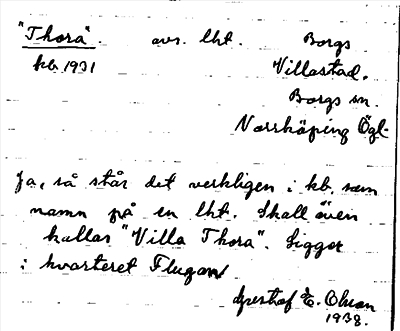 "Thora". avs. lht. Borgs
kb. 1931 Villastad.
Borgs sn.
Norrköping Ögl.
Ja, så står det verkligen i kb. som
namn på en lht. Skall även
kallas "Villa Thora". Ligger
i kvarteret Flugan
Gustaf E. Olson
1938.